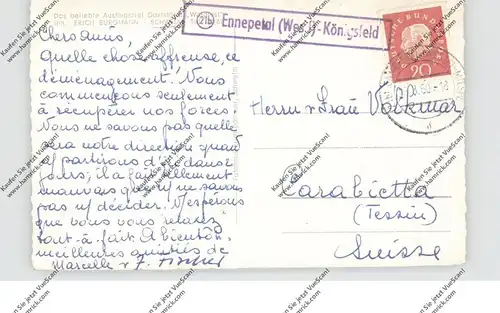 Das beliebte Ausflugsziel
Inh. ERICH BURGMANN
21b Ennepetal (Westf)-Königsfeld
DEUTSCHE BUNDESPOST
20
Chers amis,
Quelle chose affreuse, ce
déménagement! Nous
commençons seulement
à récupérer nos forces.
Nous ne savons pas quelle
sera notre direction quand
partirons dans
jours; il a fait tellement
mauvais que ne savons
pas décider. J'espérons
que vous vous
tout-à-fait. A bientôt,
meilleures amitiés de
Marcelle
Herrn u Frau Volkmar
Carabietta
(Tessin)
Suisse
Kaufen Sie jetzt VueScan!
www.hamrick.com